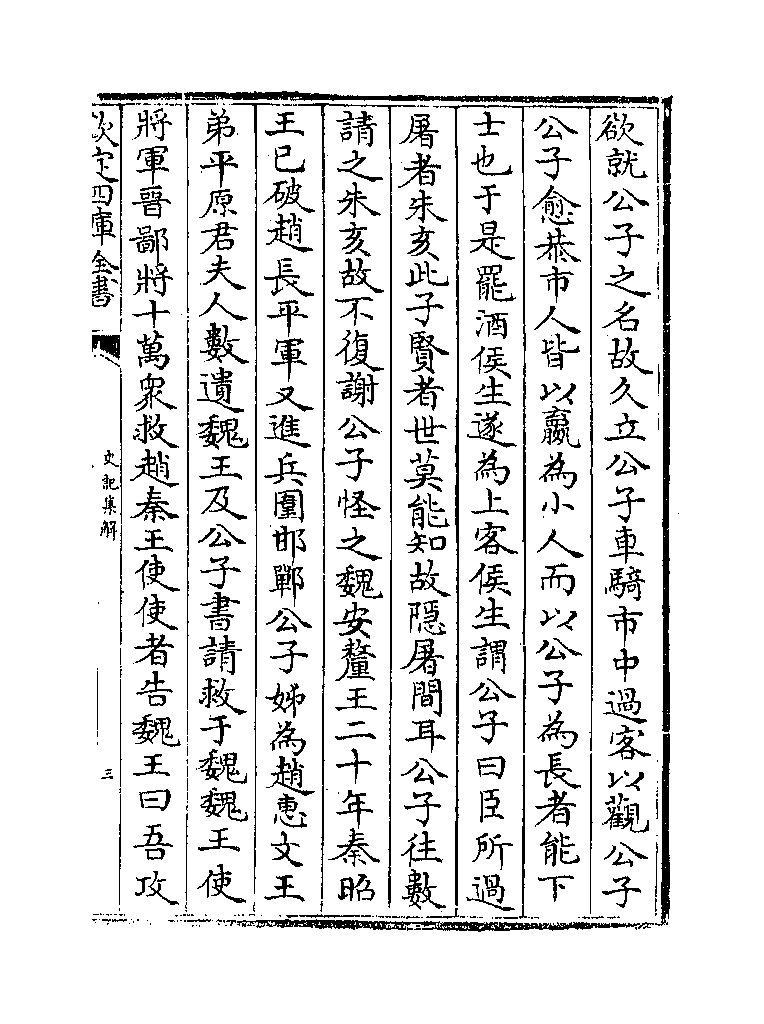 欲就公子之名故久立公子車騎市中過客以觀公子
公子愈恭市人皆以嬴為小人而以公子為長者能下
士也于是罷酒侯生遂為上客侯生謂公子曰臣所過
屠者朱亥此子賢者世莫能知故隱屠間耳公子往數
請之朱亥故不復謝公子怪之魏安釐王二十年秦昭
王已破趙長平軍又進兵圍邯鄲公子姊為趙惠文王
弟平原君夫人數遺魏王及公子書請救于魏魏王使
將軍晉鄙將十萬衆救趙秦王使使者告魏王曰吾攻
欽定四庫全書
史記集解
三